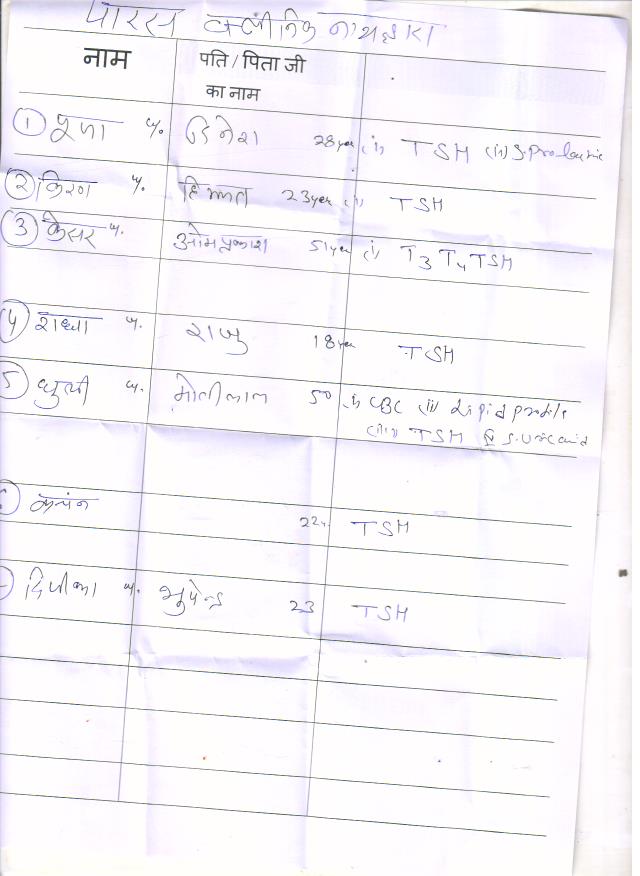 पारस क्लीनिक नाथद्वारा
नाम पति / पिता जी
का नाम
① पूजा w/. दिनेश 28 year (i) TSH (ii) S. Prolactin
② किरण w/. हिम्मत 23 year (i) TSH
③ केसर w. ओमप्रकाश 51 year (i) T3 T4 TSH
④ राधा w. राजु 18 year TSH
5 w. मोतीलाल 50 (i) CBC (ii) Lipid profile
(iii) TSH S. Uric acid
22 y. TSH
दिपीका w. भुपेन्द्र 23 TSH